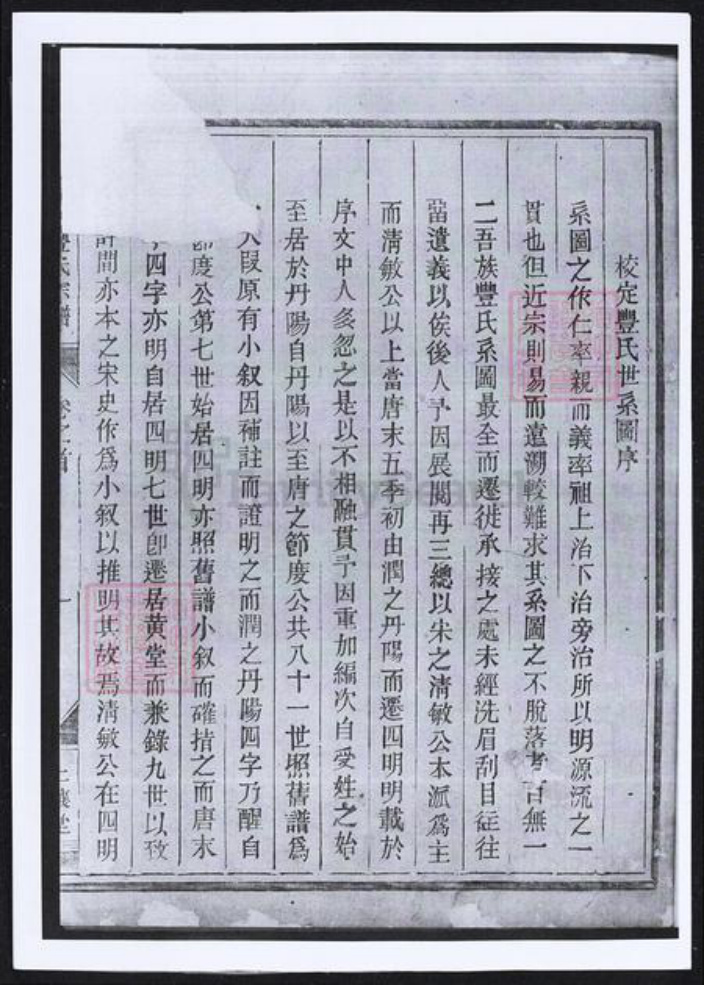 校定豐氏世系圖序
系圖之作仁率親而義率祖上治下治旁治所以明源流之一
貫也但近宗則易而遠溯較難求其系圖之不脫落者百無一
二吾族豐氏系圖最全而遷徙承接之處未經洗眉刮目往往
當遺義以俟後人予因展閱再三總以宋之清敏公本派爲主
而清敏公以上當唐末五季初由潤之丹陽而遷四明明載於
序文中人多忽之是以不相融貫予因重加編次自受姓之始
至居於丹陽自丹陽以至唐之節度公共八十一世照舊譜爲
八段原有小叙因補註而證明之而潤之丹陽四字乃醒自
節度公第七世始居四明亦照舊譜小叙而確指之而唐末
四字亦明自居四明七世卽遷居黃堂而兼錄九世以致
間亦本之宋史作爲小叙以推明其故焉清敏公在四明
豐氏宗譜 卷之首 一
FamilySearch